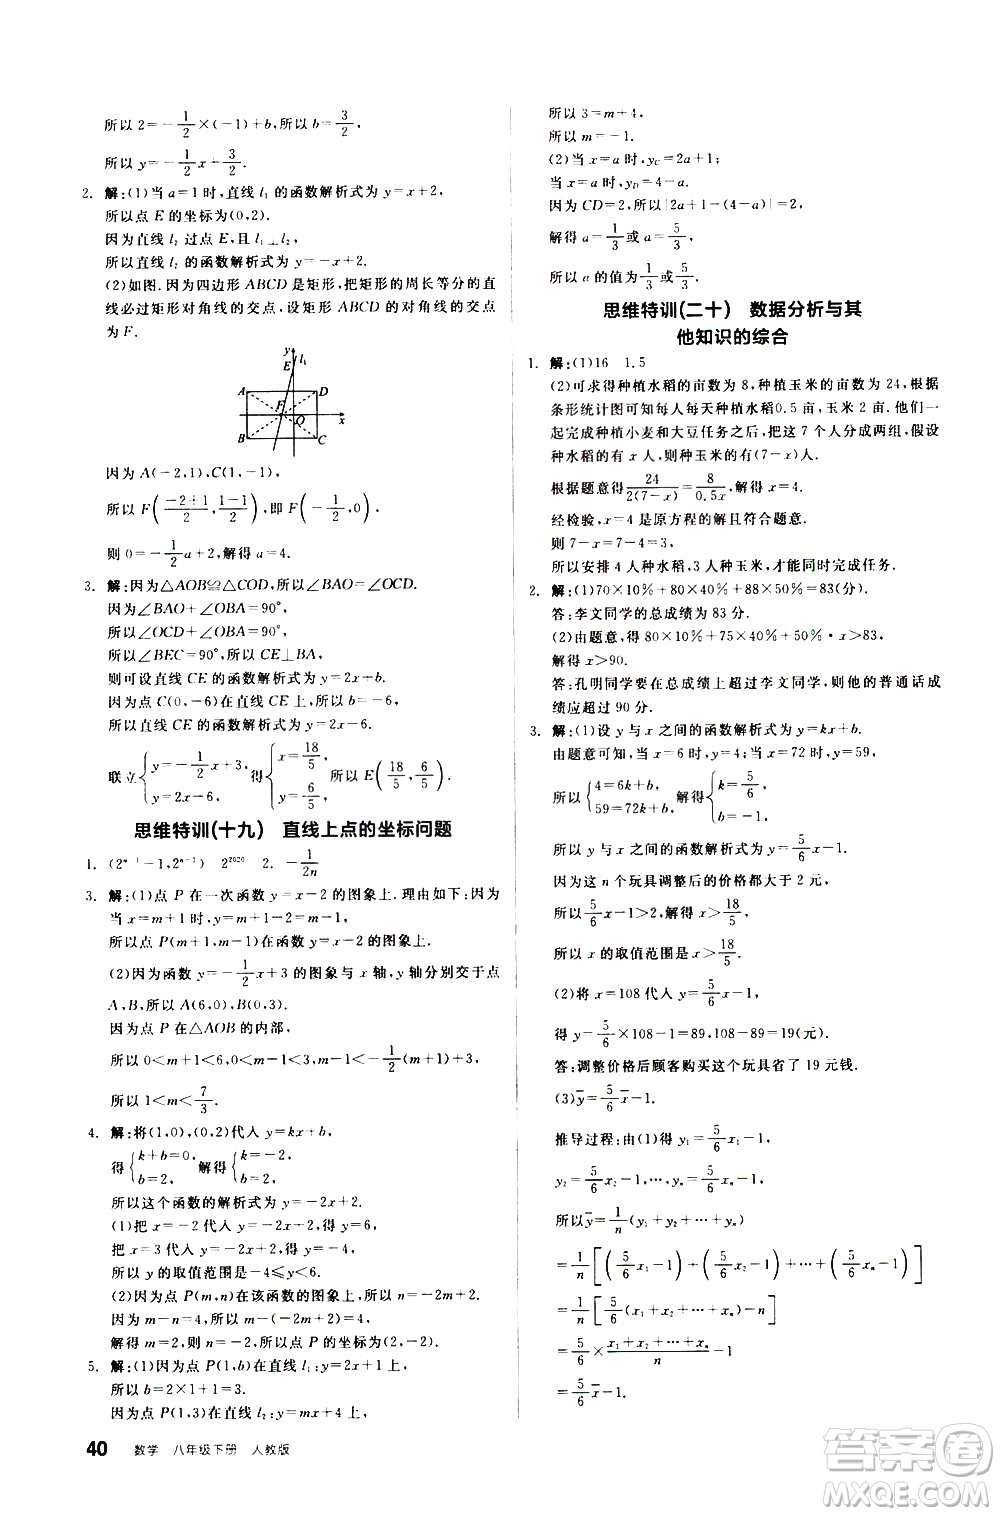 所以 2=-1/2×(-1)+b,所以 b=3/2,
所以 y=-1/2x+3/2.
2. 解:(1)当 a=1时,直线 l₁ 的函数解析式为 y=x+2,
所以点 E 的坐标为(0,2).
因为直线 l₂ 过点 E,且 l₁⊥l₂,
所以直线 l₂ 的函数解析式为 y=-x+2.
(2)如图.因为四边形 ABCD 是矩形,把矩形的周长等分的直
线必过矩形对角线的交点,设矩形 ABCD 的对角线的交点
为 F.
y
l₁
E
A
D
F
O
x
B
C
因为 A(-2,1),C(1,-1),
所以 F((-2+1)/2,(1-1)/2),即 F(-1/2,0),
则 0=-1/2a+2,解得 a=4.
3. 解:因为△AOB≌△COD,所以∠BAO=∠OCD.
因为∠BAO+∠OBA=90°,
所以∠OCD+∠OBA=90°,
所以∠BEC=90°,所以 CE⊥BA,
则可设直线 CE 的函数解析式为 y=2x+b.
因为点 C(0,-6)在直线 CE 上,所以 b=-6,
所以直线 CE 的函数解析式为 y=2x-6.
联立{y=-1/2x+3, y=2x-6, 得{x=18/5, y=6/5, 所以 E(18/5,6/5).
思维特训(十九) 直线上点的坐标问题
1. (2ⁿ⁻¹-1,2ⁿ⁻¹) 2²⁰²⁰ 2. -1/2n
3. 解:(1)点 P 在一次函数 y=x-2 的图象上.理由如下:因为
当 x=m+1时,y=m+1-2=m-1,
所以点 P(m+1,m-1)在函数 y=x-2 的图象上.
(2)因为函数 y=-1/2x+3 的图象与 x 轴,y 轴分别交于点
A,B,所以 A(6,0),B(0,3).
因为点 P 在△AOB 的内部,
所以 0<m+1<6,0<m-1<3,m-1<-1/2(m+1)+3,
所以 1<m<7/3.
4. 解:将(1,0),(0,2)代入 y=kx+b,
得{k+b=0, b=2, 解得{k=-2, b=2.
所以这个函数的解析式为 y=-2x+2.
(1)把 x=-2 代入 y=-2x+2,得 y=6,
把 x=3 代入 y=-2x+2,得 y=-4,
所以 y 的取值范围是-4≤y<6.
(2)因为点 P(m,n)在该函数的图象上,所以 n=-2m+2.
因为 m-n=4,所以 m-(-2m+2)=4,
解得 m=2,所以 n=-2,所以点 P 的坐标为(2,-2).
5. 解:(1)因为点 P(1,b)在直线 l₁:y=2x+1 上,
所以 b=2×1+1=3.
因为点 P(1,3)在直线 l₂:y=mx+4 上,
40 数学 八年级下册 人教版
所以 3=m+4,
所以 m=-1.
(2)当 x=a 时,y_C=2a+1;
当 x=a 时,y_D=4-a.
因为 CD=2,所以|2a+1-(4-a)|=2,
解得 a=1/3或 a=5/3,
所以 a 的值为1/3或5/3.
思维特训(二十) 数据分析与其
他知识的综合
1. 解:(1)16 1.5
(2)可求得种植水稻的亩数为 8,种植玉米的亩数为 24,根据
条形统计图可知每人每天种植水稻0.5 亩,玉米 2 亩.他们一
起完成种植小麦和大豆任务之后,把这 7 个人分成两组,假设
种水稻的有 x 人,则种玉米的有(7-x)人.
根据题意得24/2(7-x)=8/0.5x,解得 x=4.
经检验,x=4 是原方程的解且符合题意.
则 7-x=7-4=3,
所以安排 4 人种水稻,3 人种玉米,才能最快完成任务.
2. 解:(1)70×10%+80×40%+88×50%=83(分)
答:李文同学的总成绩为 83 分.
(2)由题意,得 80×10%+75×40%+50%·x>83,
解得 x>90.
答:孔明同学要在总成绩上超过李文同学,则他的普通话成
绩应超过 90 分.
3. 解:(1)设 y 与 x 之间的函数解析式为 y=kx+b.
由题意可知,当 x=6 时,y=4;当 x=72 时,y=59,
所以{4=6k+b, 59=72k+b, 解得{k=5/6, b=-1,
所以 y 与 x 之间的函数解析式为 y=5/6x-1.
因为这 n 个玩具调整后的价格都大于 2 元,
所以5/6x-1>2,解得 x>18/5,
所以 x 的取值范围是 x>18/5.
(2)将 x=108 代入 y=5/6x-1,
得 y=5/6×108-1=89,108-89=19(元).
答:调整价格后顾客购买这个玩具省了 19 元钱.
(3)ȳ=5/6x̄-1.
推导过程:由(1)得 y₁=5/6x₁-1,
y₂=5/6x₂-1,…,yₙ=5/6xₙ-1,
所以ȳ=1/n(y₁+y₂+…+yₙ)
=1/n[(5/6x₁-1)+(5/6x₂-1)+…+(5/6xₙ-1)]
=1/n[5/6(x₁+x₂+…+xₙ)-n]
=5/6×(x₁+x₂+…+xₙ)/n-1
=5/6x̄-1.
作业精灵